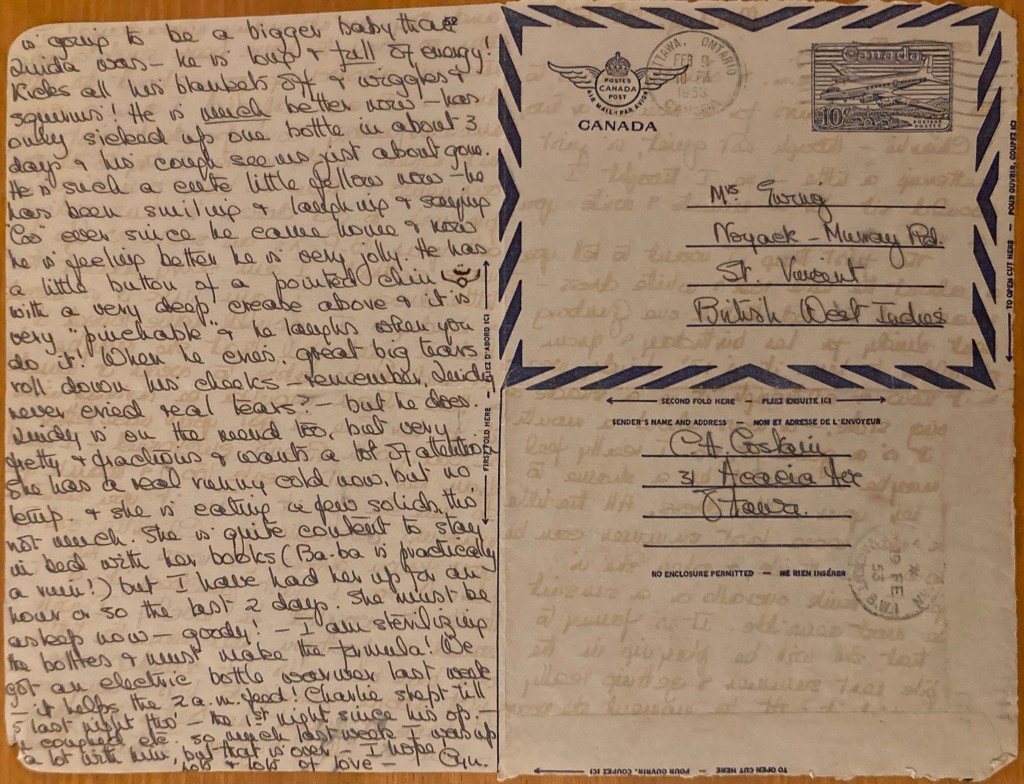 52
is going to be a bigger baby than
was – he is long & full of energy!
Kicks all his blankets off & wiggles &
squirms! He is much better now – has
only sicked up one bottle in about 3
days & his cough seems just about gone.
He is such a cute little fellow now – he
has been smiling & laughing & saying
"Coo" ever since he came home & now
he is feeling better he is very jolly. He has
a little button of a pointed chin
with a very deep crease above & it is
very "pinchable" & he laughs when you
do it! When he cries, great big tears
roll down his cheeks – remember,
never cried real tears? – but he does.
is on the mend too, but very
& fractious & wants a lot of attention
She has a real runny cold now, but no
temp. & she is eating a few solids, tho'
not much. She is quite content to stay
in bed with her books (Ba-ba is practically
a ruin!) but I have had her up for an
hour or so the last 2 days. She must be
asleep now – goody! – I am sterilizing
the bottles & must make the formula! We
got an electric bottle warmer last week
– it helps the 2 a.m. feed! Charlie slept till
5 last night tho' – the 1st night since his op. –
coughed etc. so much last week I was up
a lot with him, but that is over – I hope
lots & lots of love –
FIRST FOLD HERE – PLIEZ D'ABORD ICI
POSTES CANADA POST
AIR MAIL PAR AVION
CANADA
OTTAWA, ONTARIO
FEB 9
10 PM
1953
CANADA
Canada
10¢
POSTAGE POSTES
Mrs Ewing
– Murray Rd.
St. Vincent
British West Indies
TO OPEN CUT HERE – POUR OUVRIR, COUPEZ ICI
SECOND FOLD HERE – PLIEZ ENSUITE ICI
SENDER'S NAME AND ADDRESS – NOM ET ADRESSE DE L'ENVOYEUR
C.A. Costain
31 Acacia Ave
Ottawa.
NO ENCLOSURE PERMITTED – NE RIEN INSÉRER
19 FE
53
B.W.I.
TO OPEN CUT HERE – POUR OUVRIR, COUPEZ ICI